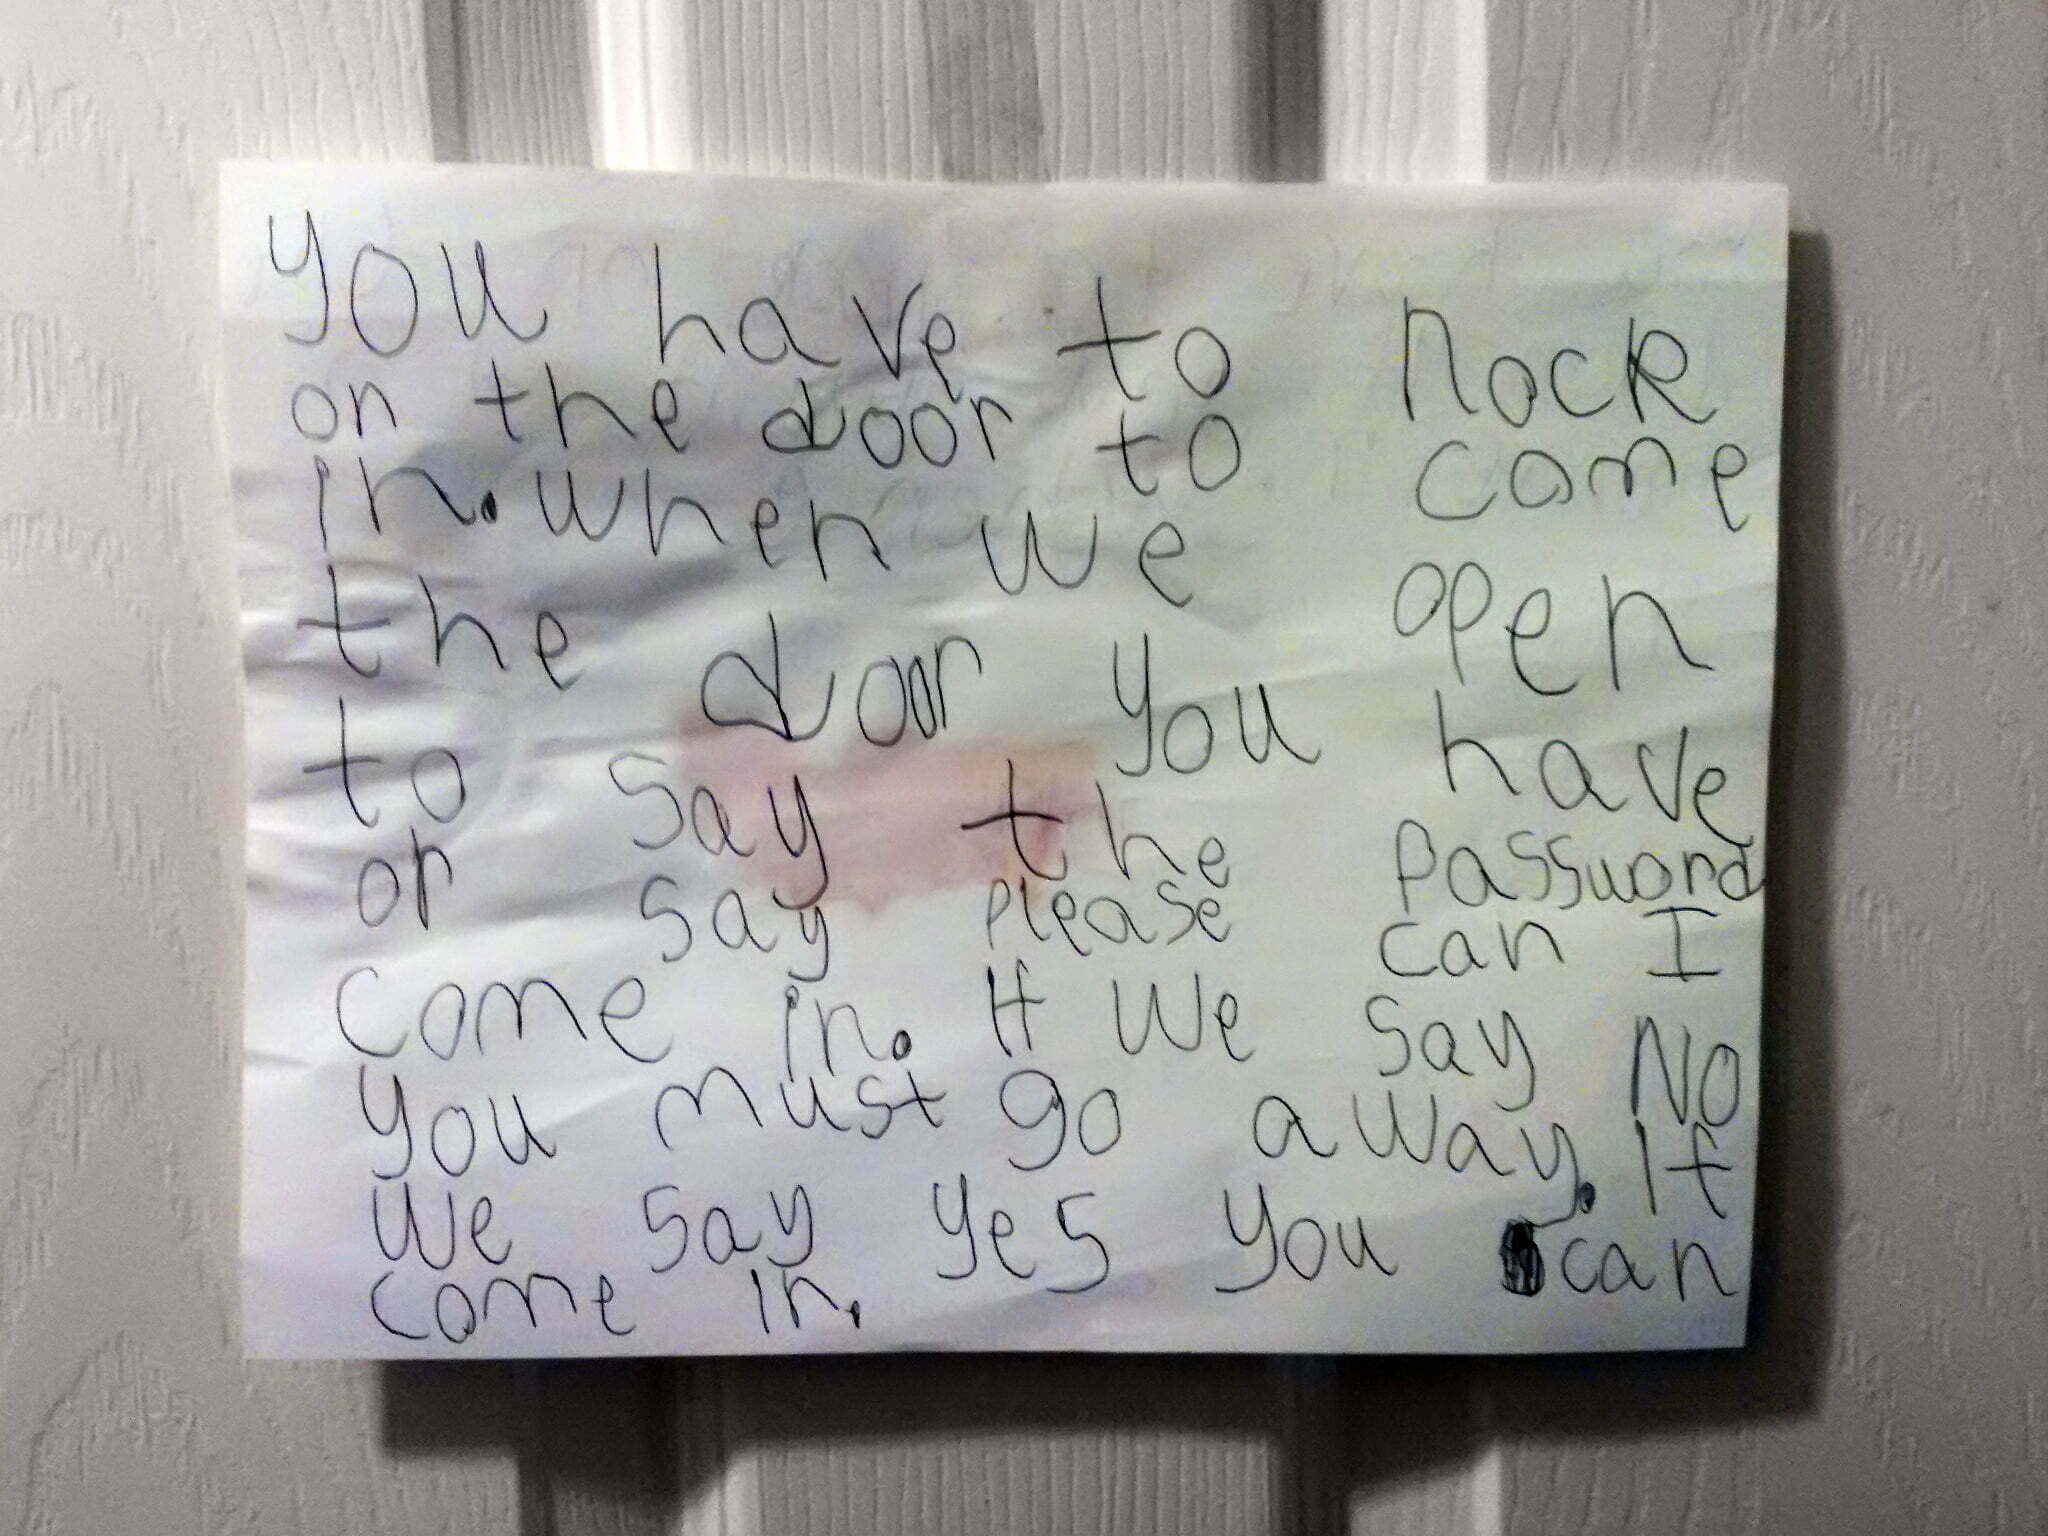 you have to nock
on the door to come
in. when we open
the door you have
to say the password
or say please can I
come in. If we say No
you must go away. If
we say yes you can
come in.